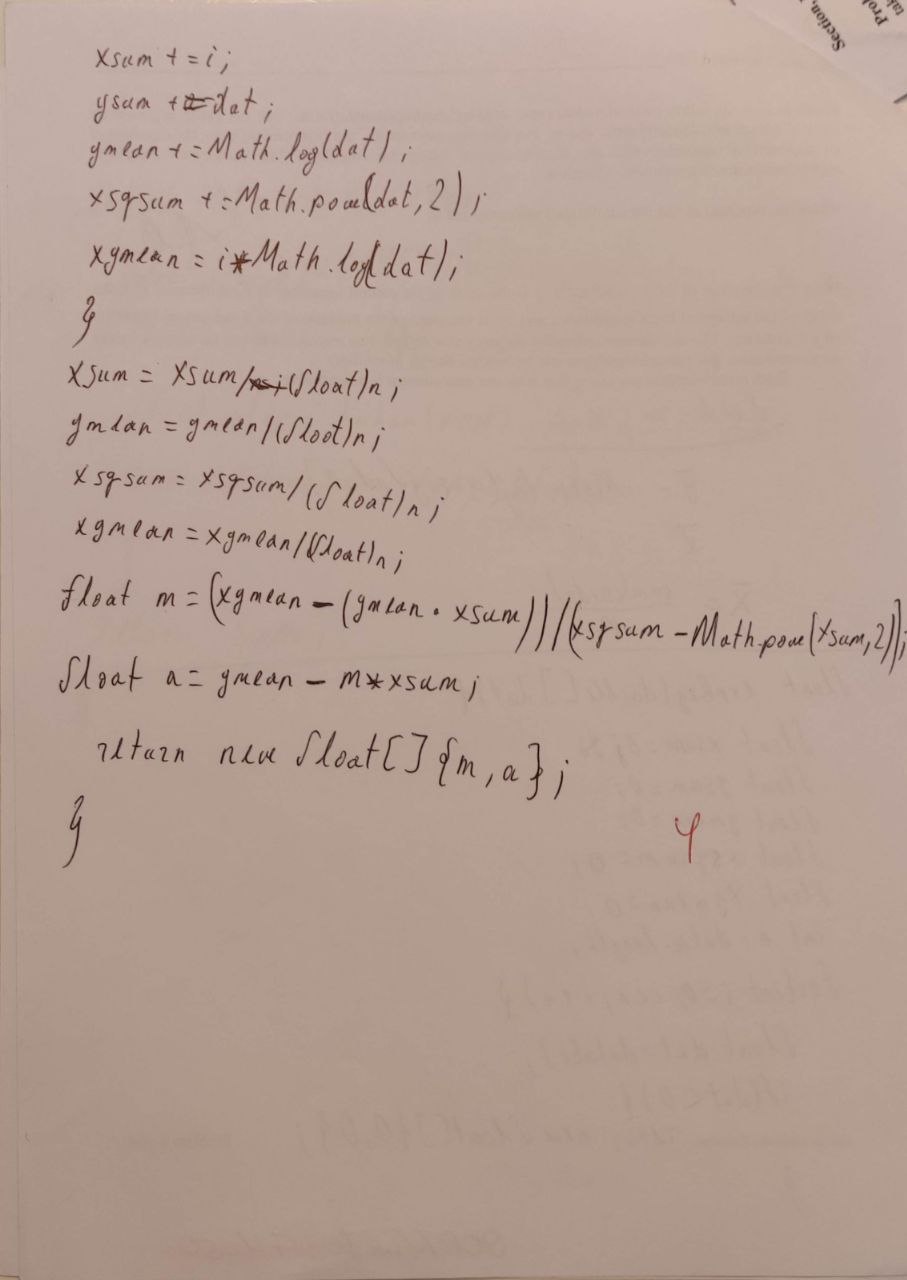 Section.
xsum += i;
ysum += dat;
ymean += Math.log(dat);
xsqsum += Math.pow(dat,2);
xymean = i*Math.log(dat);
}
xsum = xsum/(float)n;
ymean = ymean/(float)n;
xsqsum = xsqsum/(float)n;
xymean = xymean/(float)n;
float m = (xymean - (ymean * xsum))/(xsqsum - Math.pow(xsum,2));
float a = ymean - m*xsum;
return new float[]{m,a};
}